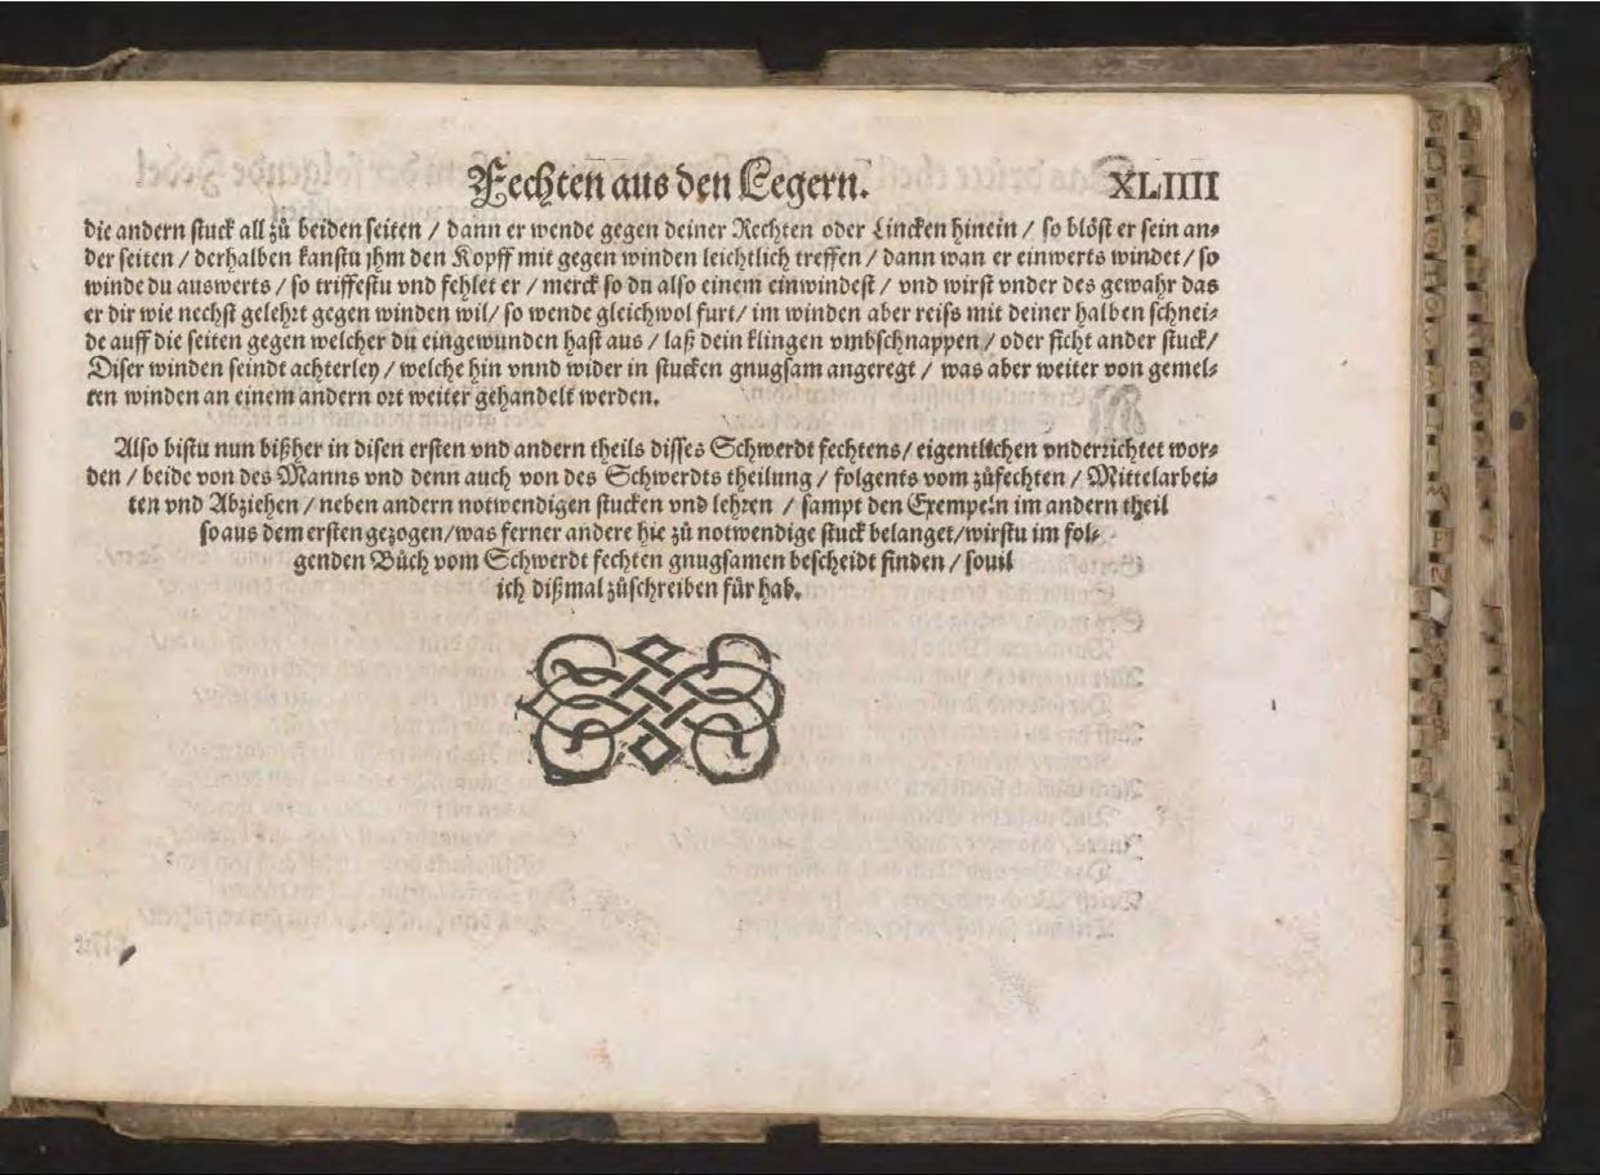 Fechten aus den Legern. XLIIII
die andern stuck all zů beiden seiten / dann er wende gegen deiner Rechten oder Lincken hinein / so blöst er sein an-
der seiten / derhalben kanstu jhm den Kopff mit gegen winden leichtlich treffen / dann wan er einwerts windet / so
winde du auswerts / so triffestu vnd fehlet er / merck so du also einem einwindest / vnd wirst vnder des gewahr das
er dir wie nechst gelehrt gegen winden wil / so wende gleichwol furt / im winden aber reiss mit deiner halben schnei-
de auff die seiten gegen welcher du eingewunden hast aus / laß dein klingen vmbschnappen / oder ficht ander stuck /
Diser winden seindt achterley / welche hin vnnd wider in stucken gnugsam angeregt / was aber weiter von gemel-
ten winden an einem andern ort weiter gehandelt werden.
Also bistu nun bißher in disen ersten vnd andern theils disses Schwerdt fechtens / eigentlichen vnderrichtet wor-
den / beide von des Manns vnd denn auch von des Schwerdts theilung / folgents vom zůfechten / Mittelarbei-
ten vnd Abziehen / neben andern notwendigen stucken vnd lehren / sampt den Exempeln im andern theil
so aus dem ersten gezogen / was ferner andere hie zů notwendige stuck belanget / wirstu im fol-
genden Bůch vom Schwerdt fechten gnugsamen bescheidt finden / souil
ich dißmal zůschreiben für hab.